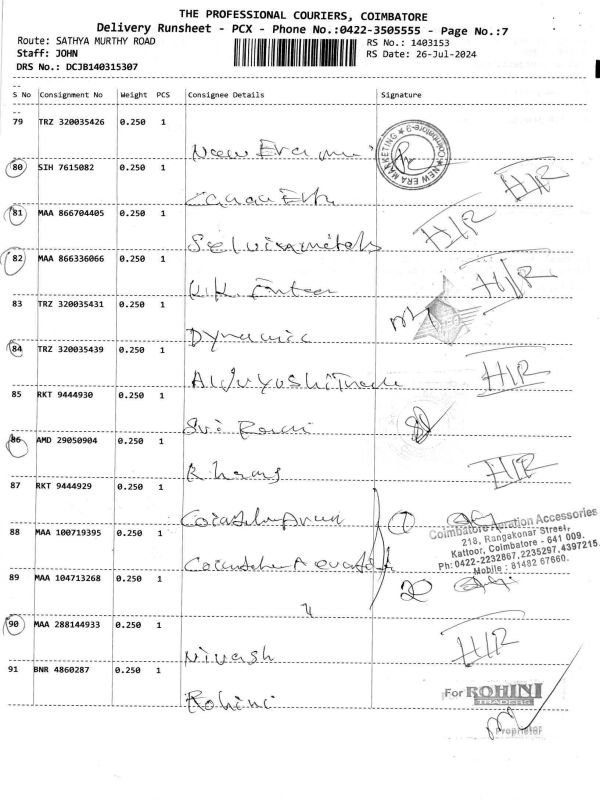 THE PROFESSIONAL COURIERS, COIMBATORE
Delivery Runsheet - PCX - Phone No.:0422-3505555 - Page No.:7
Route: SATHYA MURTHY ROAD RS No.: 1403153
Staff: JOHN RS Date: 26-Jul-2024
DRS No.: DCJB140315307
S No Consignment No Weight PCS Consignee Details Signature
79 TRZ 320035426 0.250 1
New Era
NEW ERA MARKETING
80 SIH 7615082 0.250 1
H/R
81 MAA 866704405 0.250 1
H/R
82 MAA 866336066 0.250 1
H/R
83 TRZ 320035431 0.250 1
Dynamic
84 TRZ 320035439 0.250 1
H/R
85 RKT 9444930 0.250 1
Sri
86 AMD 29050904 0.250 1
H/R
87 RKT 9444929 0.250 1
Coimbatore Aeration Accessories
218, Rangakonar Street,
Kattoor, Coimbatore - 641 009.
Ph: 0422-2232867, 2235297, 4397215
Mobile : 81482 67660.
88 MAA 100719395 0.250 1
89 MAA 104713268 0.250 1
90 MAA 288144933 0.250 1
Nivash
H/R
91 BNR 4860287 0.250 1
Rohini
For ROHINI
TRADERS
Proprietor